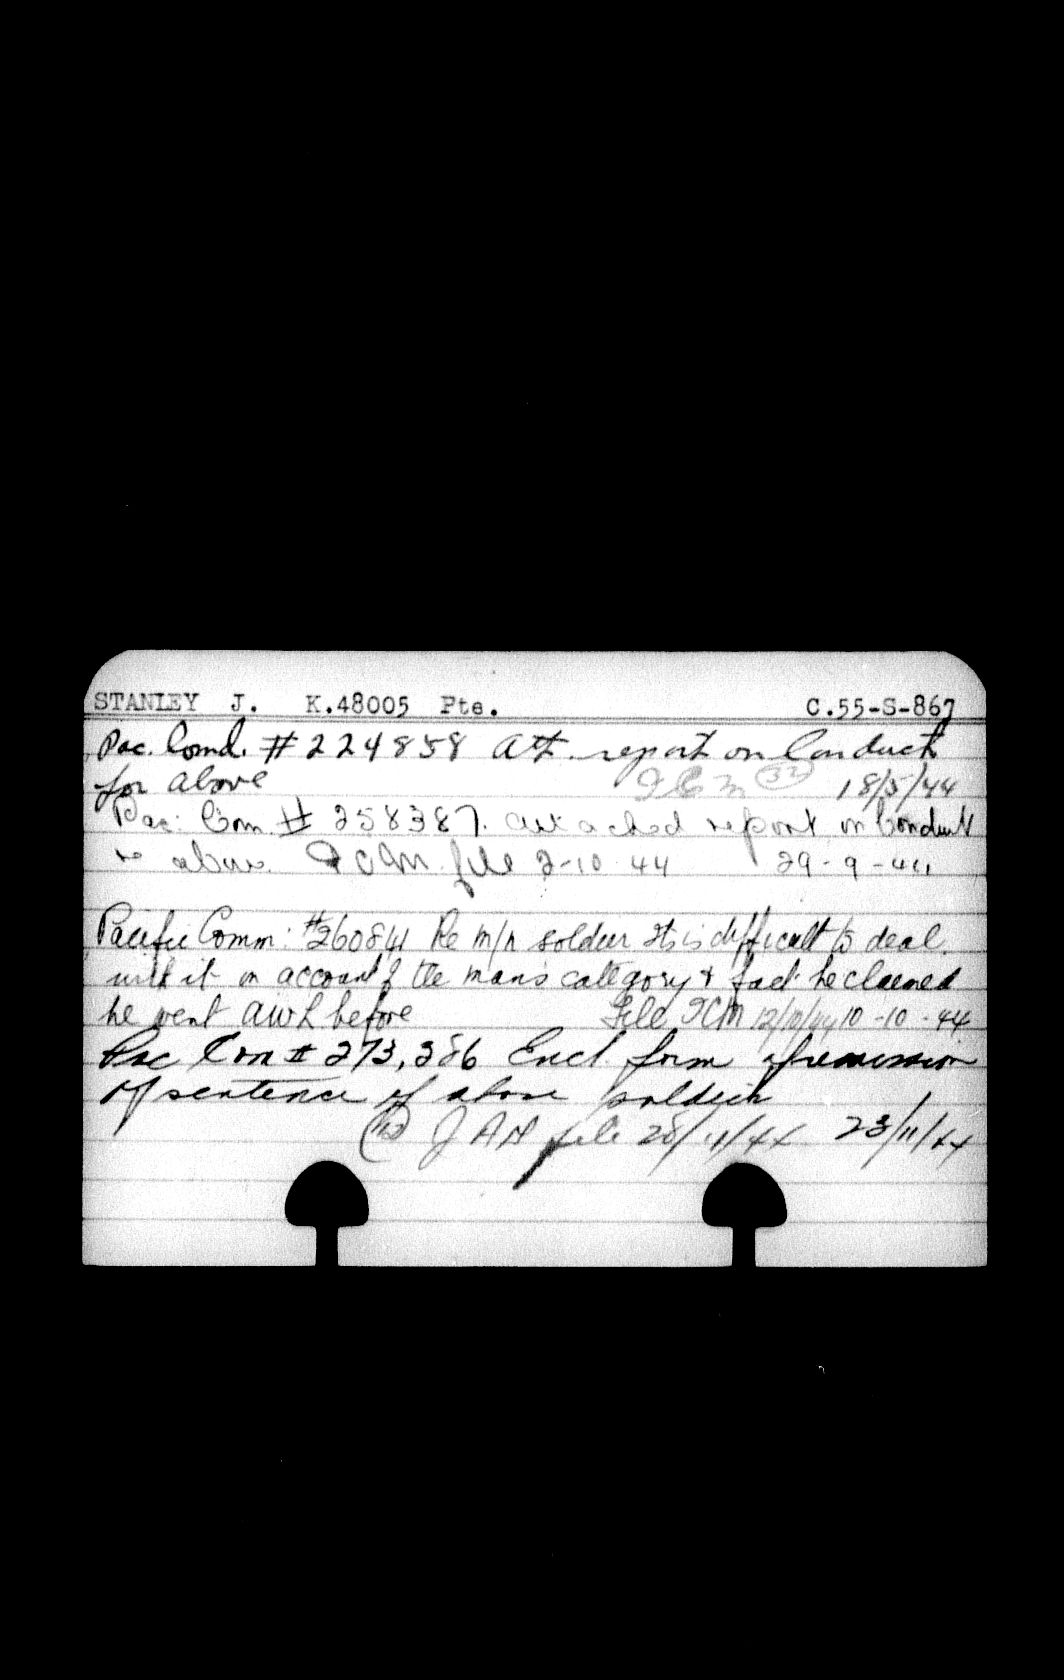 STANLEY J. K.48005 Pte. C.55-S-867
Pac. Comd. # 224858 Att. report on Conduct
for above 32 18/5/44
Pac. Com # 258387. attached report on Conduct
re above. file 2-10-44 29-9-44
Pacific Comm: #260841 Re m/n soldier It is difficult to deal
with it on account of the man's category + fact he claimed
he went AWL before File JCM 12/10/44 10-10-44
Pac Com # 273,386 Encl. form of remission
of sentence of above soldier
file 28/11/44 23/11/44